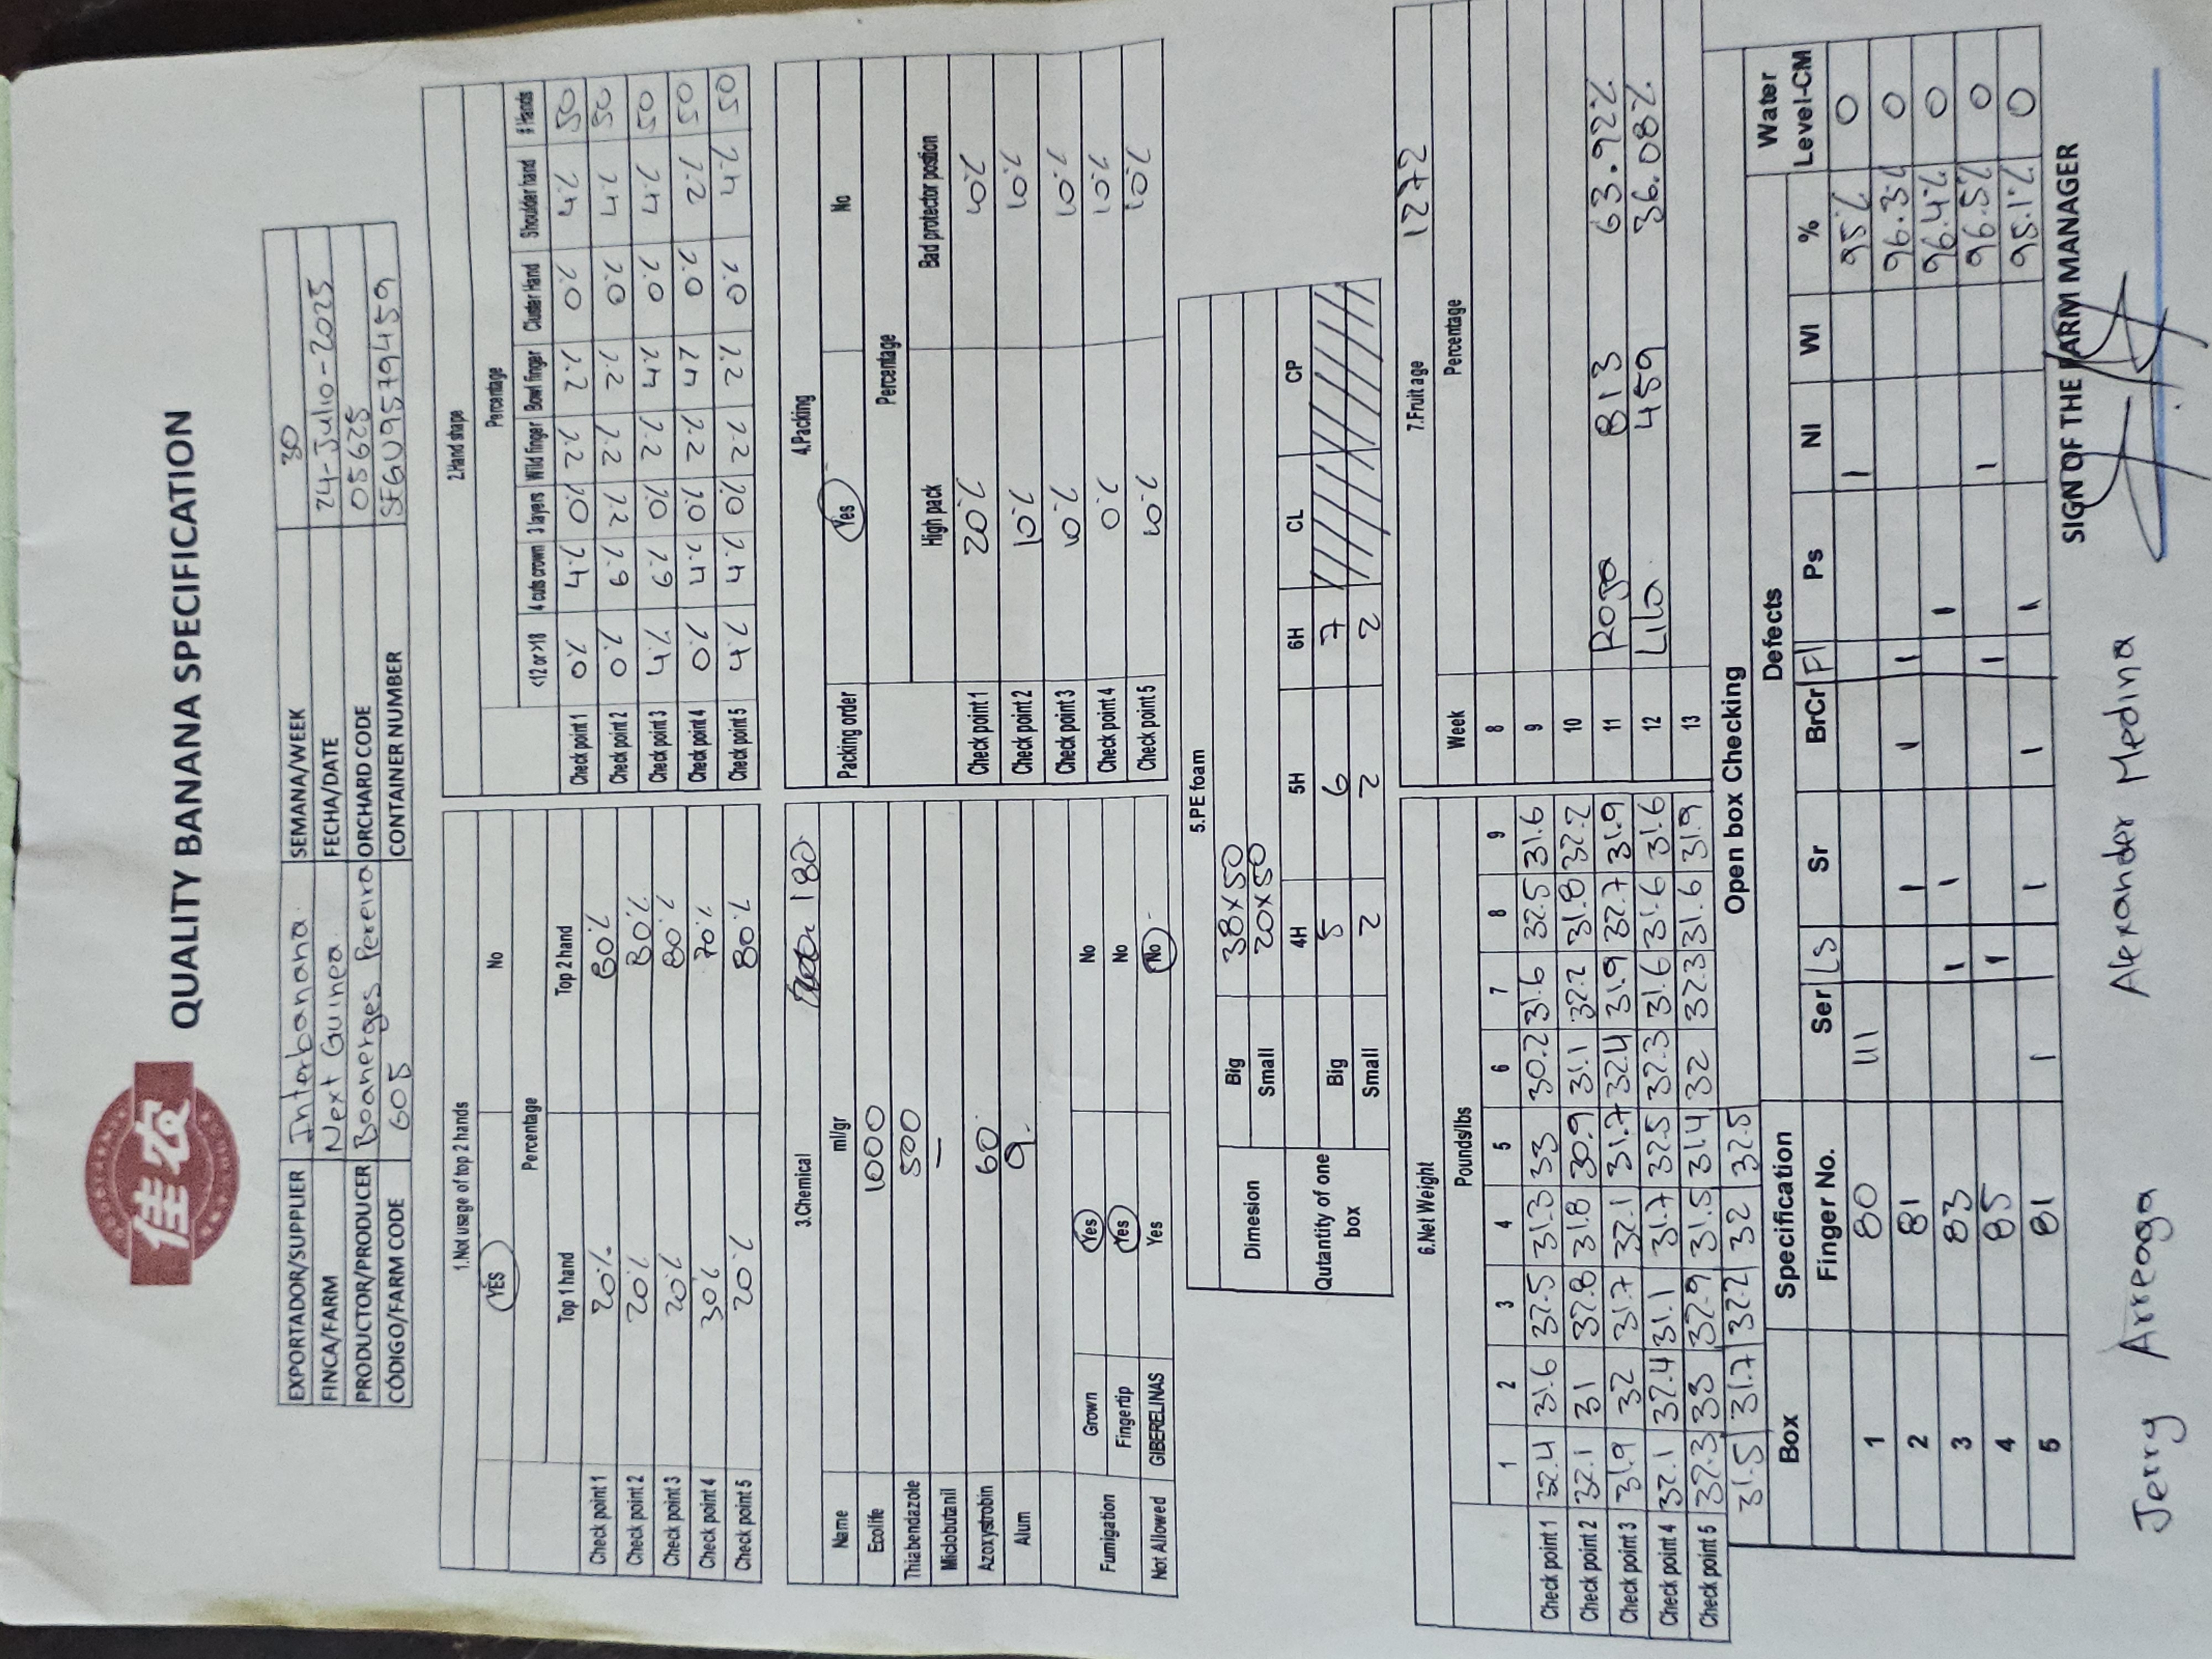 佳农
QUALITY BANANA SPECIFICATION
EXPORTADOR/SUPPLIER Interbanana. SEMANA/WEEK 30
FINCA/FARM Next Guinea. FECHA/DATE 24-Julio-2025
PRODUCTOR/PRODUCER Boanerges Pereira ORCHARD CODE 05625
CÓDIGO/FARM CODE 605 CONTAINER NUMBER SEGU9579459
1.Not usage of top 2 hands
YES No
Percentage
Top 1 hand Top 2 hand
Check point 1 20% 80%
Check point 2 20% 80%
Check point 3 20% 80%
Check point 4 30% 70%
Check point 5 20% 80%
2.Hand shape
Percentage
<12 or >18 4 cuts crown 3 layers Wild finger Bowl finger Cluster Hand Shoulder hand # Hands
Check point 1 0% 4% 0% 2% 2% 0% 4% 50
Check point 2 0% 6% 2% 2% 2% 0% 4% 50
Check point 3 4% 6% 0% 2% 4% 0% 4% 50
Check point 4 0% 4% 0% 2% 4% 0% 2% 50
Check point 5 4% 4% 0% 2% 2% 0% 4% 50
3.Chemical 180
Name ml/gr
Ecolife 1000
Thiabendazole 500
Miclobutanil —
Azoxystrobin 60
Alum 9.
Fumigation Grown Yes No
Fingertip Yes No
Not Allowed GIBERELINAS Yes No
4.Packing
Packing order Yes No
Percentage
High pack Bad protector postion
Check point 1 20% 10%
Check point 2 10% 10%
Check point 3 10% 10%
Check point 4 0% 10%
Check point 5 10% 10%
5.PE foam
Dimesion Big 38x50
Small 20x50
Qutantity of one box 4H 5H 6H CL CP
Big 5 6 7
Small 2 2 2
6.Net Weight
Pounds/lbs
1 2 3 4 5 6 7 8 9
Check point 1 32.4 31.6 32.5 31.3 33 30.2 31.6 32.5 31.6
Check point 2 32.1 31 32.8 31.8 30.9 31.1 32.2 31.8 32.2
Check point 3 31.9 32 31.7 32.1 31.7 32.4 31.9 32.7 31.9
Check point 4 32.1 32.4 31.1 31.7 32.5 32.3 31.6 31.6 31.6
Check point 5 32.3 33 32.9 31.5 31.4 32 32.3 31.6 31.9
31.5 31.7 32.2 32 32.5
7.Fruit age 1272
Week Percentage
8
9
10
11 Roja 813 63.92%
12 Lila 459 36.08%
13
Open box Checking
Box Specification Defects Water Level-CM
Finger No. Ser LS Sr BrCr Fl Ps NI WI %
1 80 III I 95% 0
2 81 I I I 96.3% 0
3 83 I I I 96.4% 0
4 85 I I I 96.5% 0
5 81 I I I I 95.1% 0
SIGN OF THE FARM MANAGER
Jerry Arreaga Alexander Medina